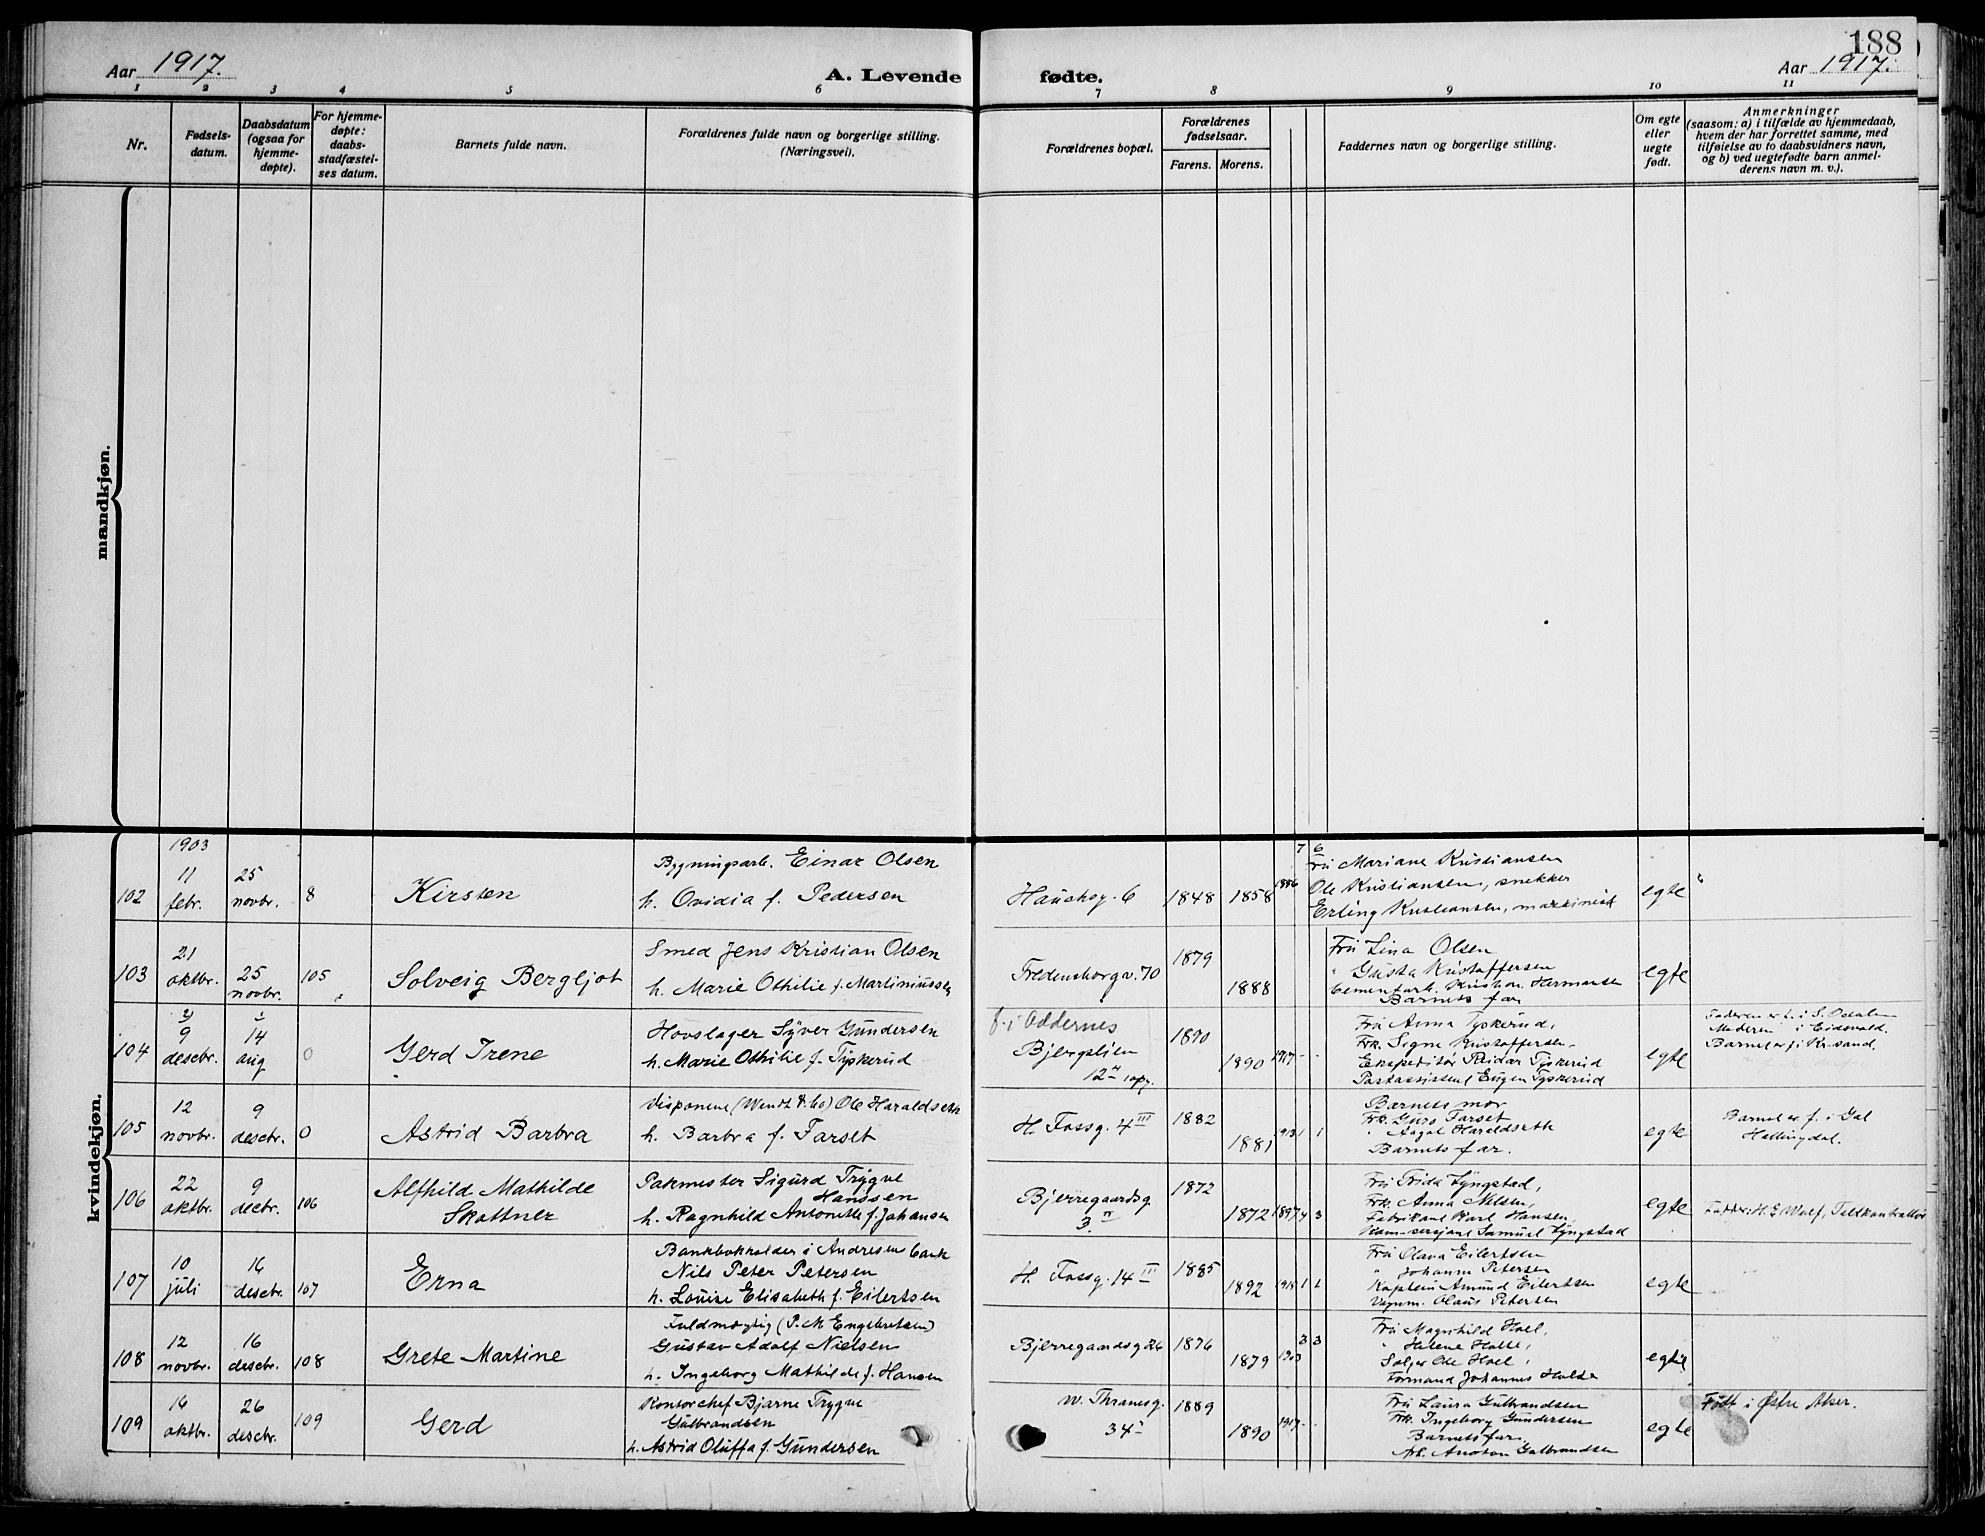 188
Aar 1917.
A. Levende fødte.
Aar 1917.
1 2 3 4 5 6 7 8 9 10 11
Nr.
Fødsels-
datum.
Daabsdatum
(ogsaa for
hjemme-
døpte).
For hjemme-
døpte:
daabs-
stadfæstel-
ses datum.
Barnets fulde navn.
Forældrenes fulde navn og borgerlige stilling.
(Næringsvei).
Forældrenes bopæl.
Forældrenes
fødselsaar.
Farens. Morens.
Faddernes navn og borgerlige stilling.
Om egte
eller
uegte
født.
Anmerkninger
(saasom: a) i tilfælde av hjemmedaab,
hvem der har forrettet samme, med
tilføielse av to daabsvidners navn,
og b) ved uegtefødte barn anmel-
derens navn m. v.).
mandkjøn.
kvindekjøn.
102
1903
11
febr.
25
novbr.
8
Kirsten
Bygningsarb. Einar Olsen
h. Ovidia f. Pedersen
Hauchsg. 6
1848
1858
1886
7 6
Fru Mariane Kristiansen
Ole Kristiansen, snekker
Erling Kristiansen, maskinist
egte
103
21
oktbr.
25
novbr.
105
Solveig Bergljot
Smed Jens Kristian Olsen
h. Marie Othilie f. Martiniussen
Fredensborgv. 70
1879
1888
Fru Lina Olsen
" Gusta Kristoffersen
Cementarb. Kristian Hermansen
Barnets far
egte
104
9
descbr.
14
aug
0
Gerd Irene
Hovslager Syver Gundersen
h. Marie Othilie f. Tyskerud
f. i Oddernes
Bjergslien
12
1890
1890
1917 - -
Fru Anna Tyskerud,
Frk. Signe Kristoffersen
Ekspeditør Reidar Tyskerud
Postassistent Eugen Tyskerud
egte
Faderen er f. i S. Odalen
Moderen " i Eidsvold.
Barnet er f. i Kr.sand.
105
12
novbr.
9
descbr.
0
Astrid Barbra
Disponent (Wendt & Co) Ole Haraldseth
h. Barbra f. Farset
H. Fossg. 4 III
1882
1881
1913 1 1
Barnets mor
Frk. Guro Farset
" Aagot Haraldseth
Barnets far.
egte
Barnet er f. i Gol
Hallingdal.
106
22
oktbr.
9
decbr.
106
Alfhild Mathilde
Skottner
Pakmester Sigurd Trygve
Hanssen
h. Ragnhild Antonette f. Johansen
Bjerregaardsg
3 II
1872
1872
1897 4 3
Fru Frida Lyngstad,
Frk. Anna Nilsen,
Fabrikant Karl Hansen
Samuel Lyngstad
egte
Fadder: H. E. Wolf, Toldkontrollør
107
10
juli
16
descbr.
107
Erna
Bankbokholder i Andresens bank
Nils Peter Petersen
h. Louise Elisabeth f. Eilertsen
H. Fossg. 14 II
1885
1892
1915 1 1
Fru Olava Eilertsen
" Johanne Petersen
Kaptein Amund Eilertsen
Vognm. Olaus Petersen
egte
108
12
novbr.
16
descbr.
108
Grete Martine
Fuldmægtig (P. M. Engebretsen)
Gustav Adolf Nielsen
h. Ingeborg Mathilde f. Hansen
Bjerregaardsg 26
1876
1879
1903
3 3
Fru Magnhild Hoel,
" Helene Holte,
Selger Ole Hoel,
Formand Johannes Holte
egte
109
16
oktbr.
26
descbr.
109
Gerd
Kontorchef Bjarne Trygve
Gulbrandsen
h. Astrid Oluffa f. Gundersen
W. Thranesg.
34 I
1889
1890
1917 - -
Fru Laura Gulbrandsen
Frk. Ingeborg Gundersen
Barnets far.
Gulbrandsen
egte
Født i Østre Aker.